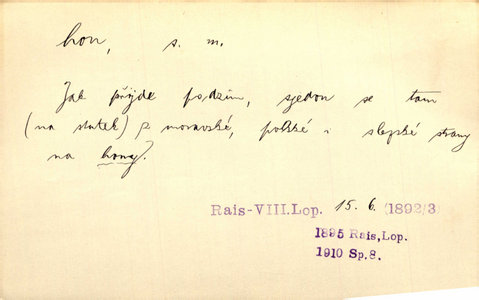 hon, s. m.
Jak přijde podzim, sjedou se tam
(na statek) z moravské, polské i slezské strany
na hony.
Rais-VIII.Lop. 15. 6. (1892/3)
1895 Rais,Lop.
1910 Sp.8.